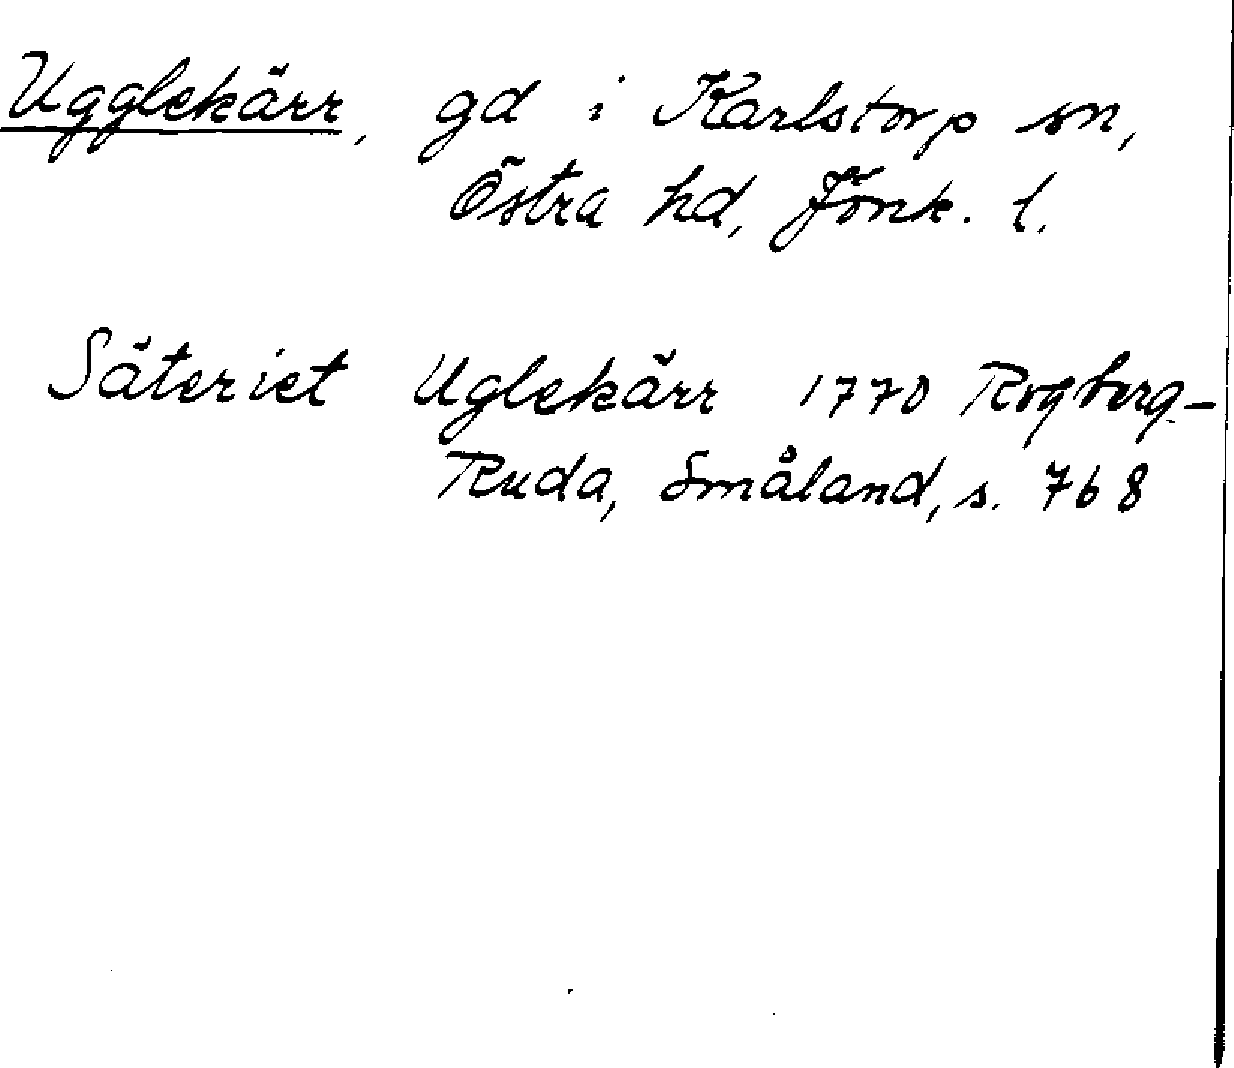 Ugglekärr, gd i Karlstorp sn,
Östra hd, Jönk. l.
Säteriet Uglekärr 1770 Rogberg-
Ruda, Småland, s. 768